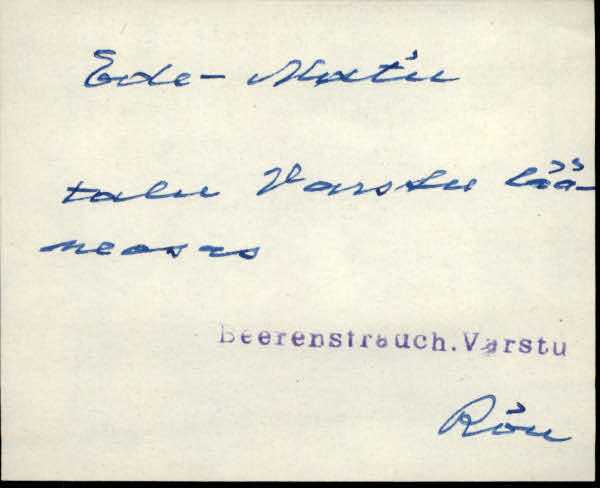 Ede-Matu
talu Varstu lää-
neosas
Beerenstrauch.Varstu
Rõu